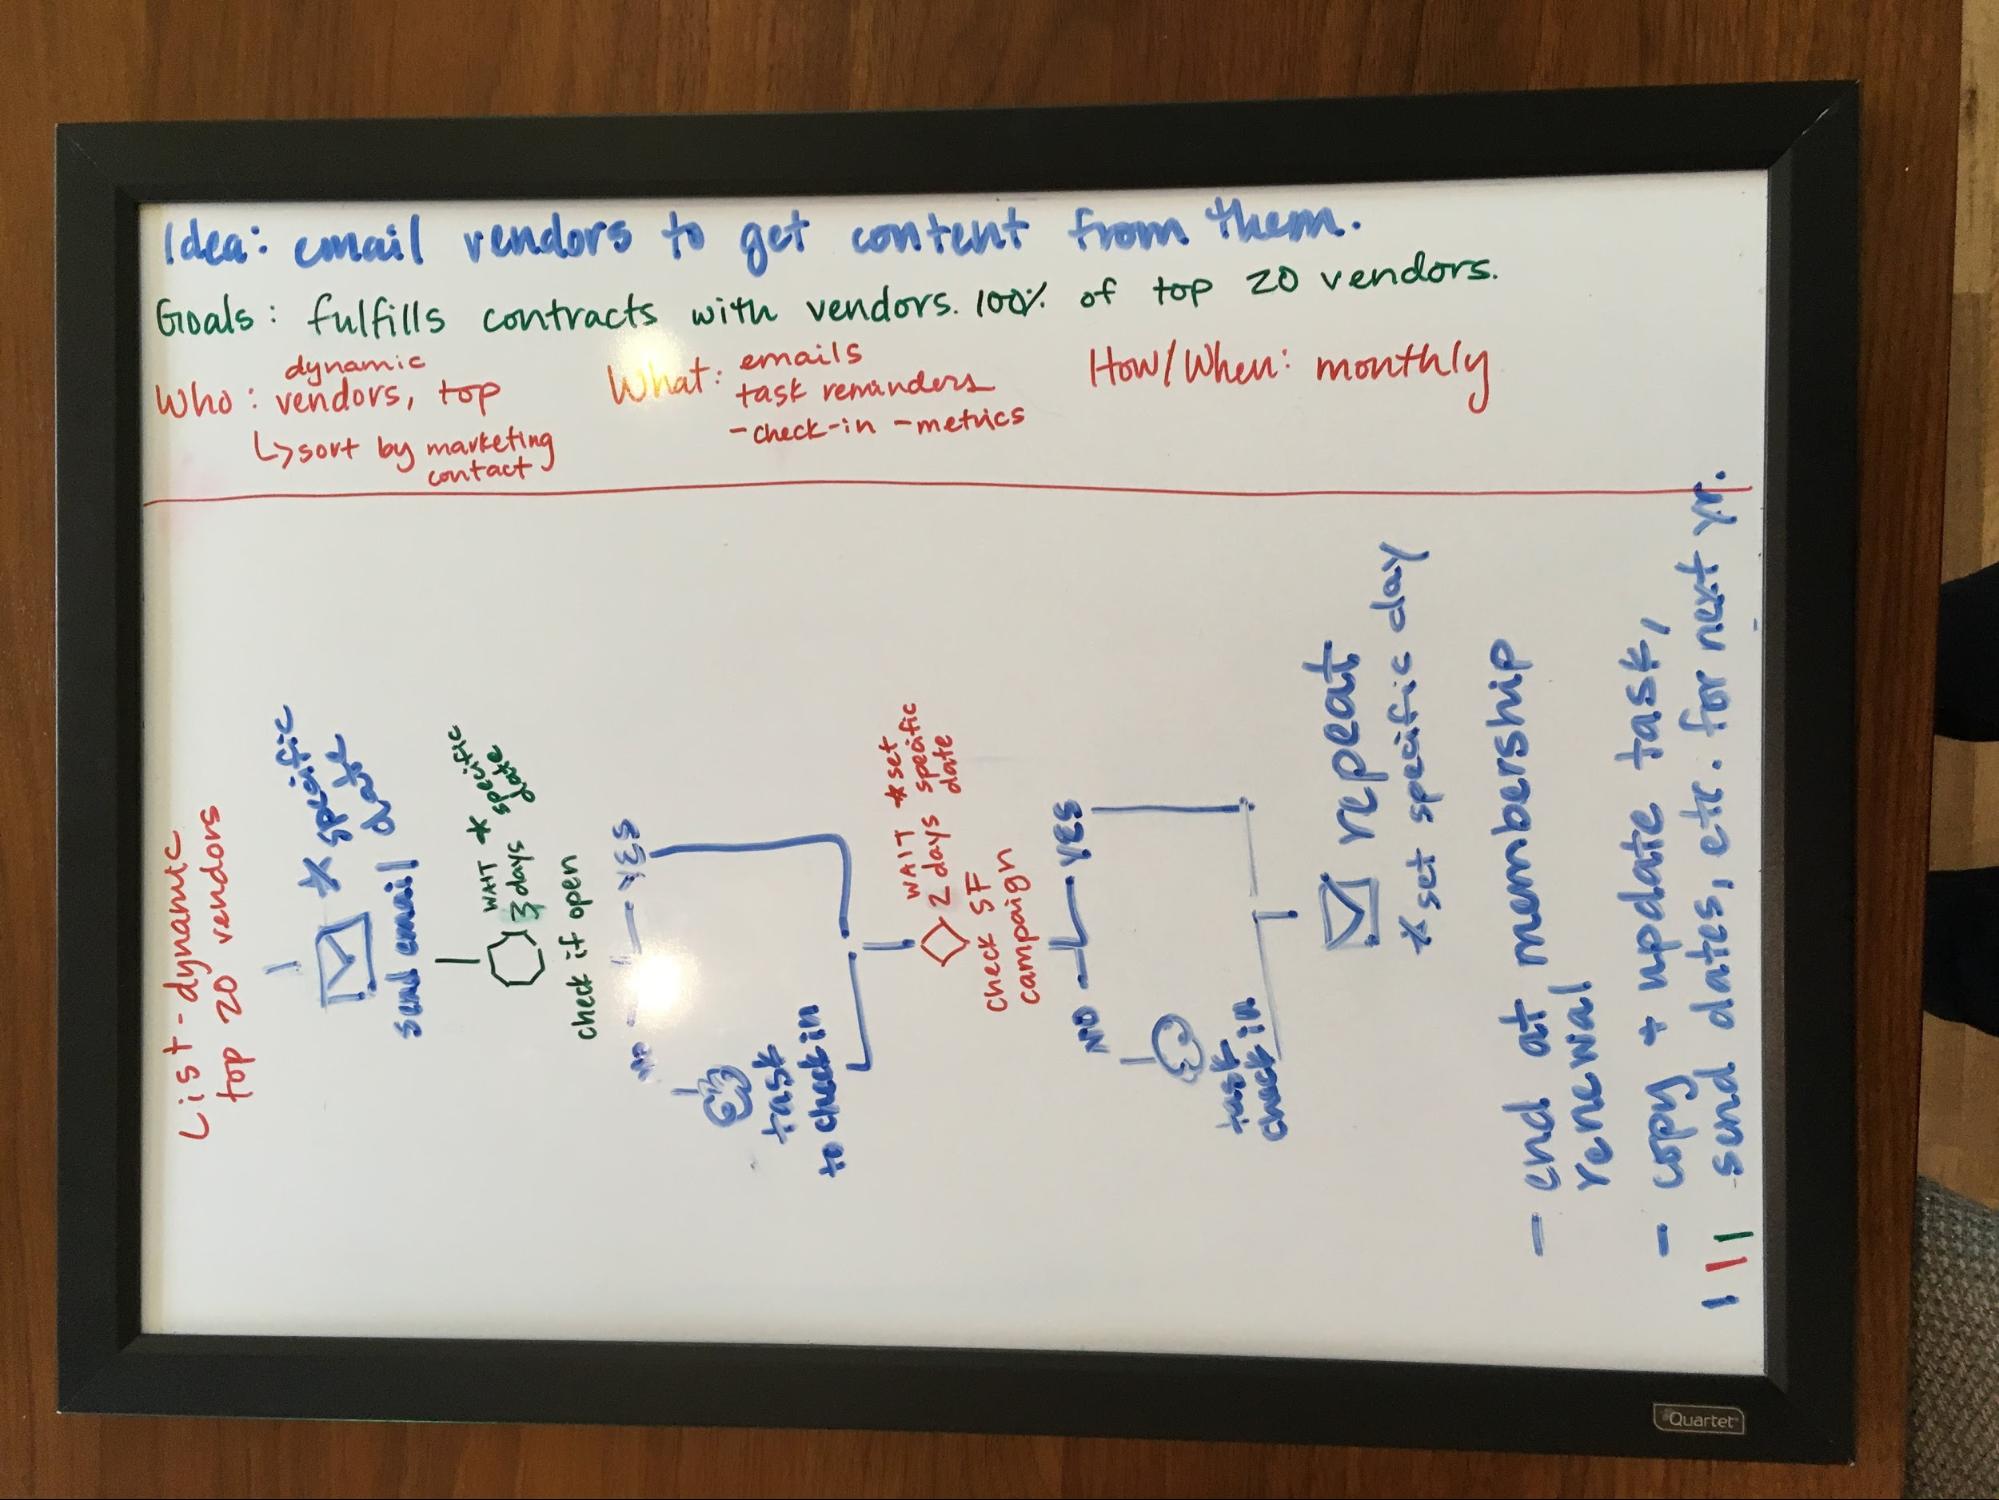 Idea: email vendors to get content from them.
Goals: fulfills contracts with vendors. 100% of top 20 vendors.
dynamic
Who: vendors, top
↳ sort by marketing
contact
What: emails
task reminders
- check-in - metrics
How/When: monthly
List - dynamic
top 20 vendors
* specific
date
send email
WAIT *
3 days specific
date
check if open
NO
YES
task
to check in
WAIT *set
2 days specific
date
check SF
campaign
NO
YES
task
check in
repeat
* set specific day
- end at membership
renewal
- copy + update task,
send dates, etc. for next yr.
Quartet